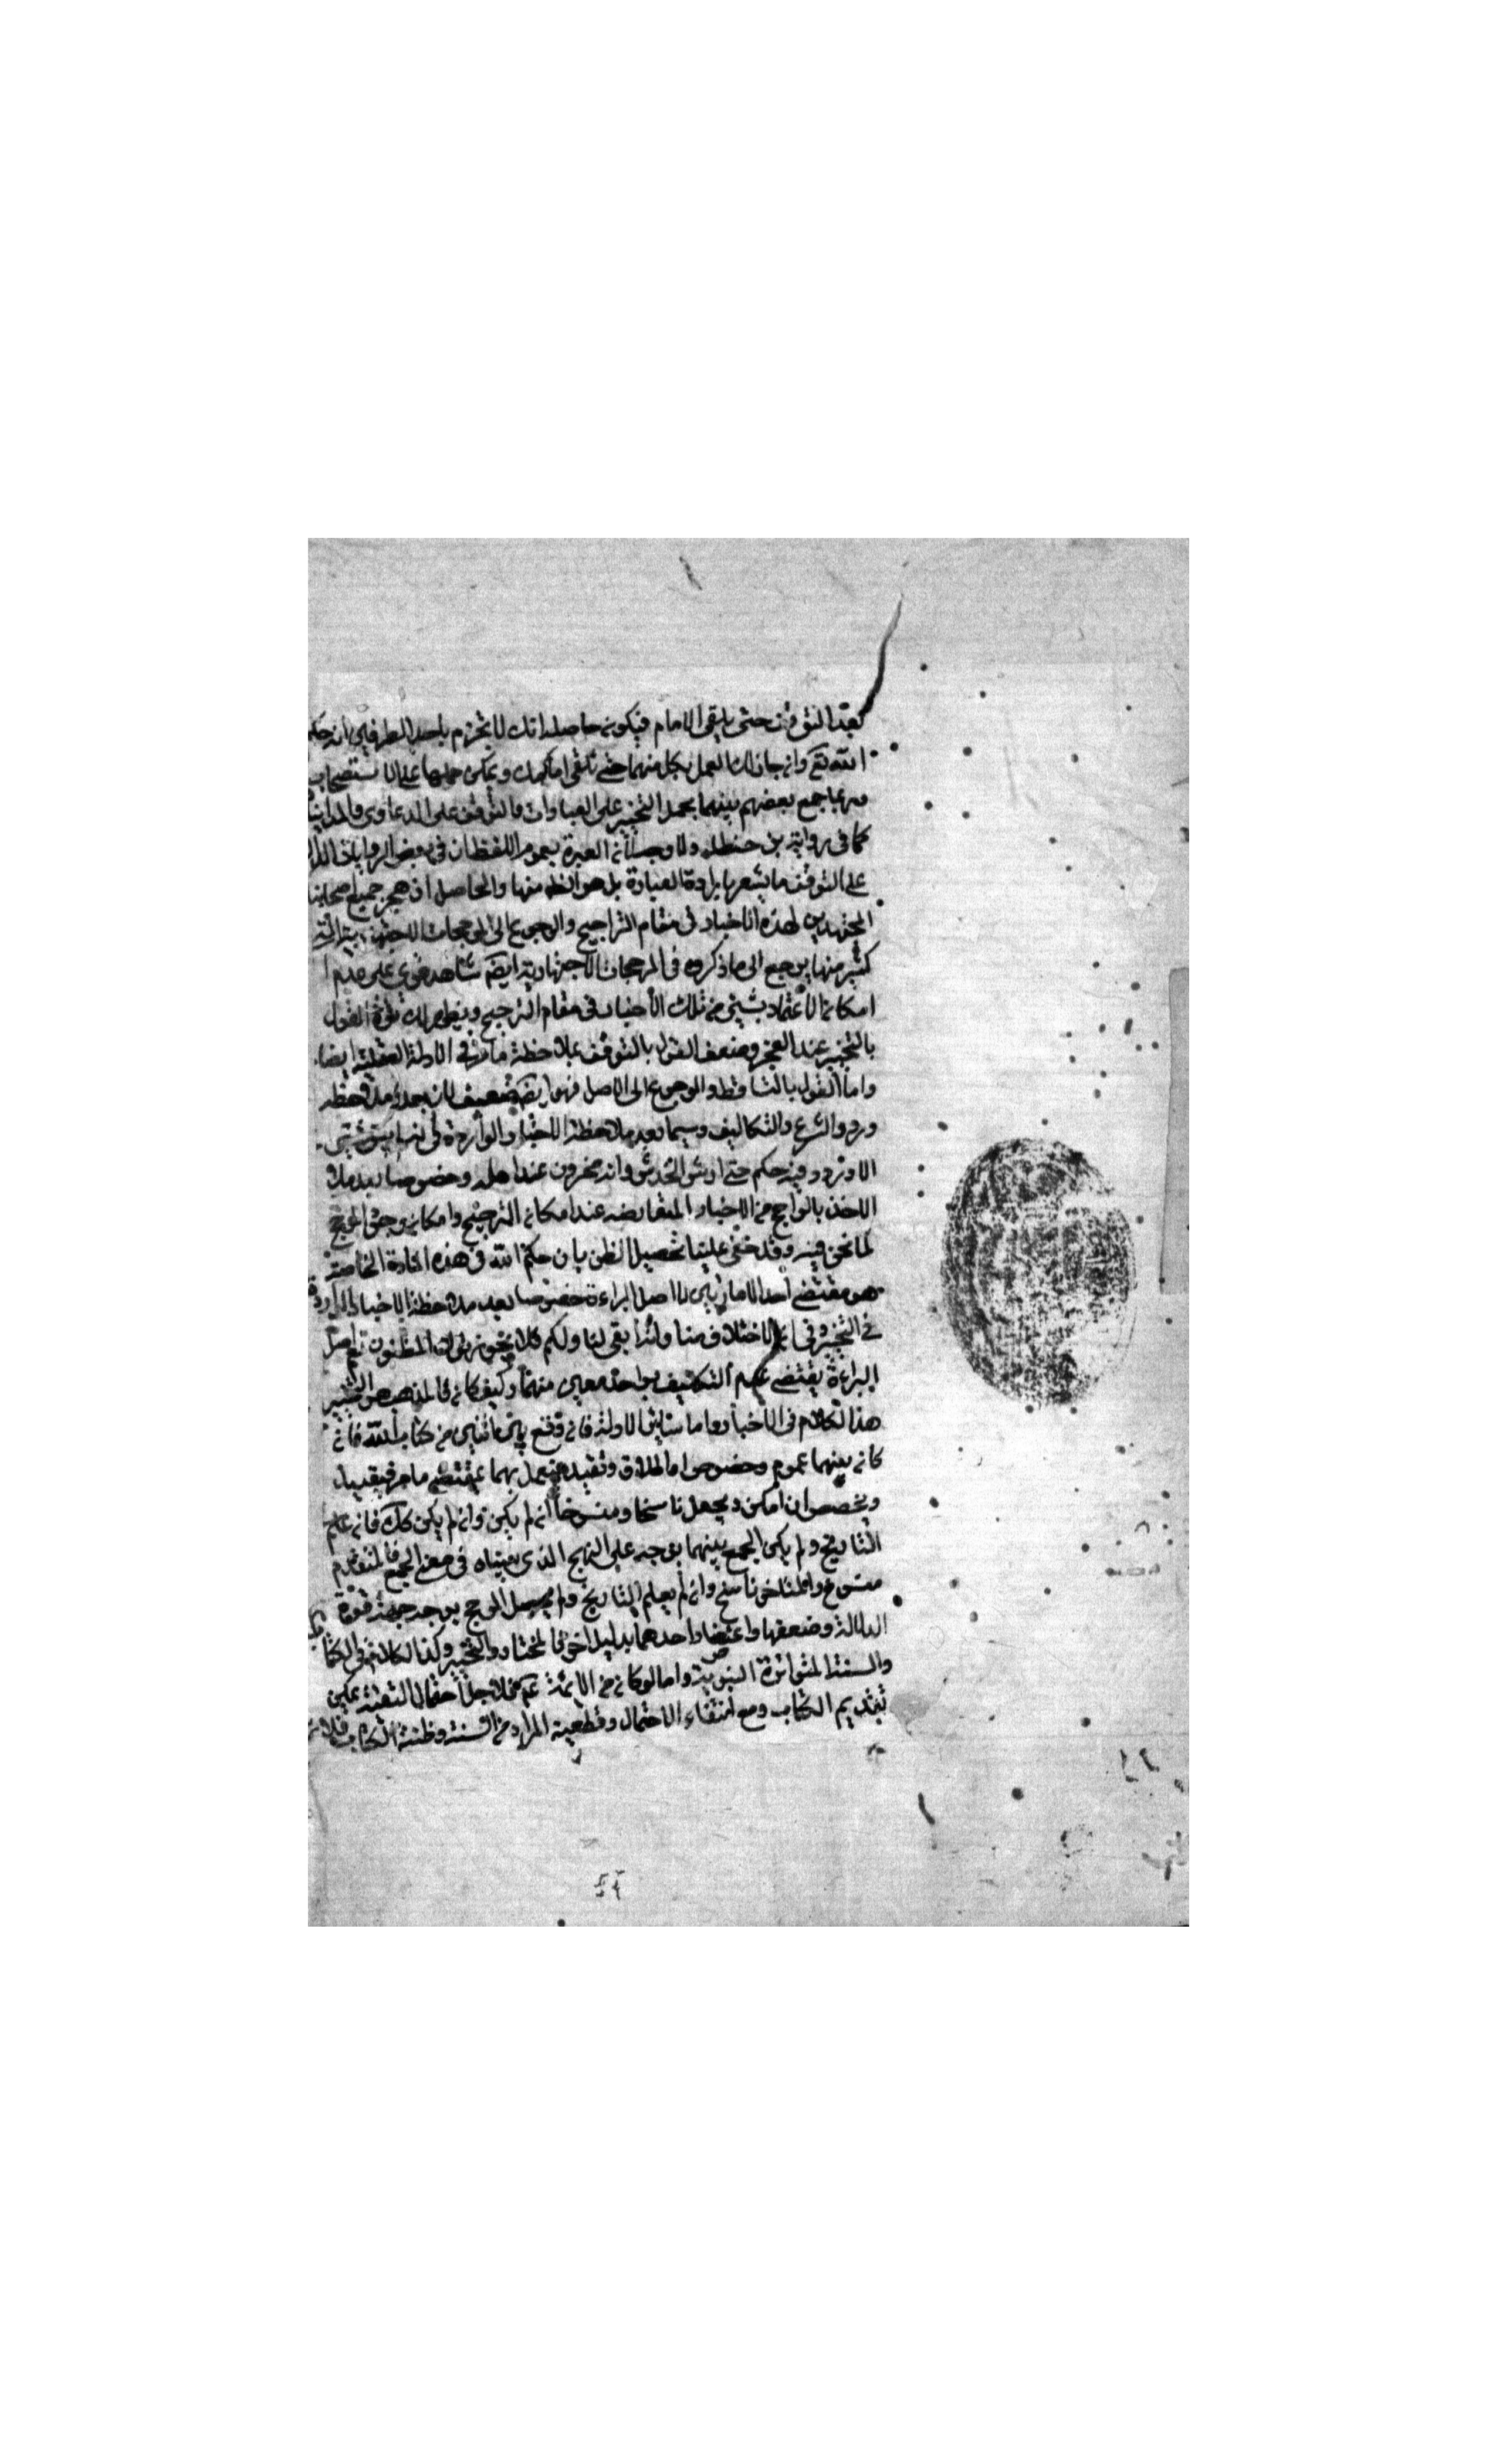 بعد التوقف حتى يلقى الامام فيكون حاصله انك لا تجزم باحد الطرفين انه حكم
الله تع وان جاز لك العمل بكل منهما حتى تلقى امامك ويمكن حملها على الاستحباب
وربما جمع بعضهم بينهما بحمل التخيير على العبادات والتوقف على الدعاوى والمداينات
كما فى رواية بن حنظله ولا وجه لان العبرة بعموم اللفظ ان فى بعض الروايات الدالة
على التوقف ما يشعر بارادة العبادة بل هو الظ منها والحاصل ان هجر جميع اصحابنا
المجتهدين لهذه الاخبار فى مقام التراجيح والرجوع الى المرجحات الاجتهادية
كثير منها يرجع الى ما ذكروه فى المرجحات الاجتهادية ايضا شاهد قوى على عدم
امكان الاعتماد بشئ من تلك الأخبار فى مقام الترجيح ويظهر لك قوة القول
بالتخيير عند العجز وضعف القول بالتوقف بملاحظة ما مر فى الادلة العقلية ايضا
واما القول بالتساقط والرجوع الى الاصل فهو ايضا ضعيف لان بعد ملاحظه
ورود الشرع والتكاليف وسيما بعد ملاحظة الاخبار الواردة فى انه ليس شئ
الا وورد فيه حكم حتى ارش الخدش وانه مخزون عند اهله وخصوصا بعد ملا
الاخذ بالراجح من الاخبار المتعارضه عند امكان الترجيح وامكان وجود المرجح
لما نحن فيه وقد خفى علينا تحصيل الظن بان حكم الله فى هذه المادة الخاصة
هو مقتضى احد الامارتين لا اصل البراءة خصوصا بعد ملاحظة الاخبار الواردة
فى التخيير وفى ان الاختلاف منا وانه ابقى لنا ولكم فلا يجوز ترك المظنون نعم اصل
البراءة يقتضى عدم التكليف بواحد معين منهما وكيف كان فالمذهب هو التخيير
هذا الكلام فى الاخبار واما سائر الادلة فان وقع بين اثنين من كتاب الله فان
كان بينهما عموم وخصوص او اطلاق وتقييد فيعمل بهما بمقتضى ما مر فيقيد
ويخصص ان امكن ويجعل ناسخا ومنسوخا ان لم يكن وان لم يكن كك فان علم
التاريخ ولم يكن الجمع بينهما بوجه على النهج الذى بيناه فى معنى الجمع فالمتقدم
منسوخ والمتاخر ناسخ وان لم يعلم التاريخ ولم يحصل المرجح بوجه من جهة قوة
الدلالة وضعفها واعتضاد احدهما بدليل اخر فالمختار هو التخيير وكذا الكلام فى الكتاب
والسنة المتواترة النبوية واما لو كان من الائمة ع فلاجل احتمال التقية يمكن
تقديم الكتاب ومع انتفاء الاحتمال وقطعية المراد من السنة وظنية الكتاب فلا